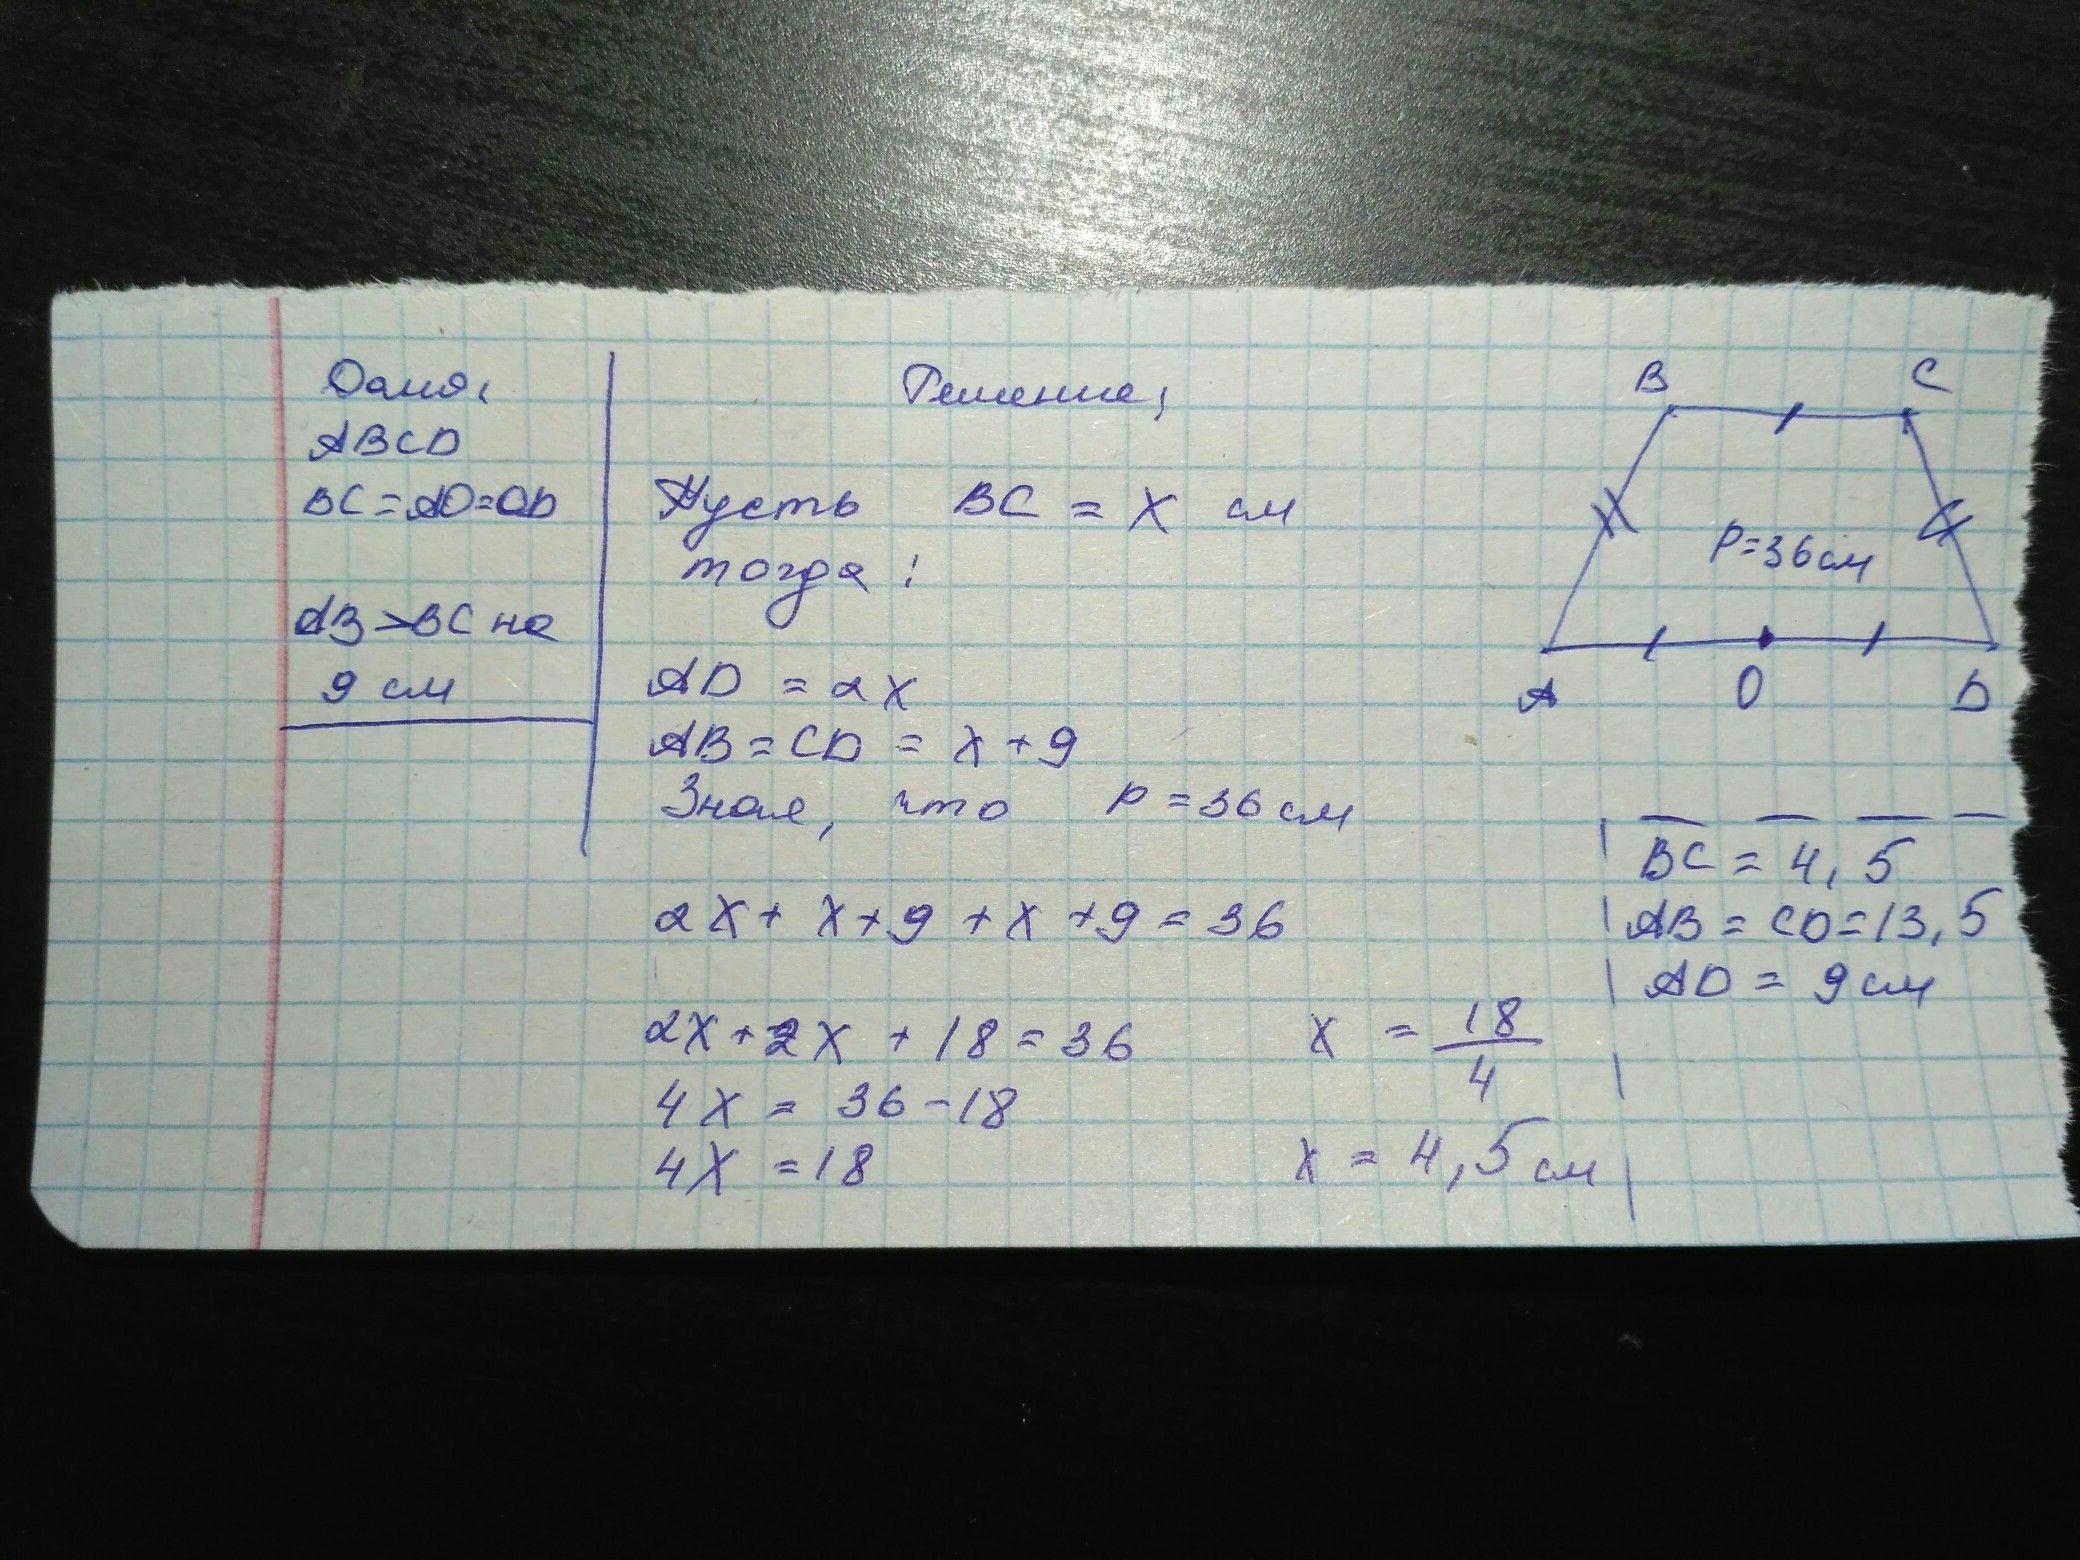 Дано:
ABCD
BC=AO=OD
AB>BC на
9 см
Решение:
Пусть BC = x см
тогда:
AD = 2x
AB = CD = x+9
Зная, что p = 36 см
2x + x+9 + x+9 = 36
2x+2x + 18 = 36
4x = 36-18
4x = 18
x = 18/4
x = 4,5 см
B C
P=36 см
A O D
BC = 4,5
AB = CD = 13,5
AD = 9 см